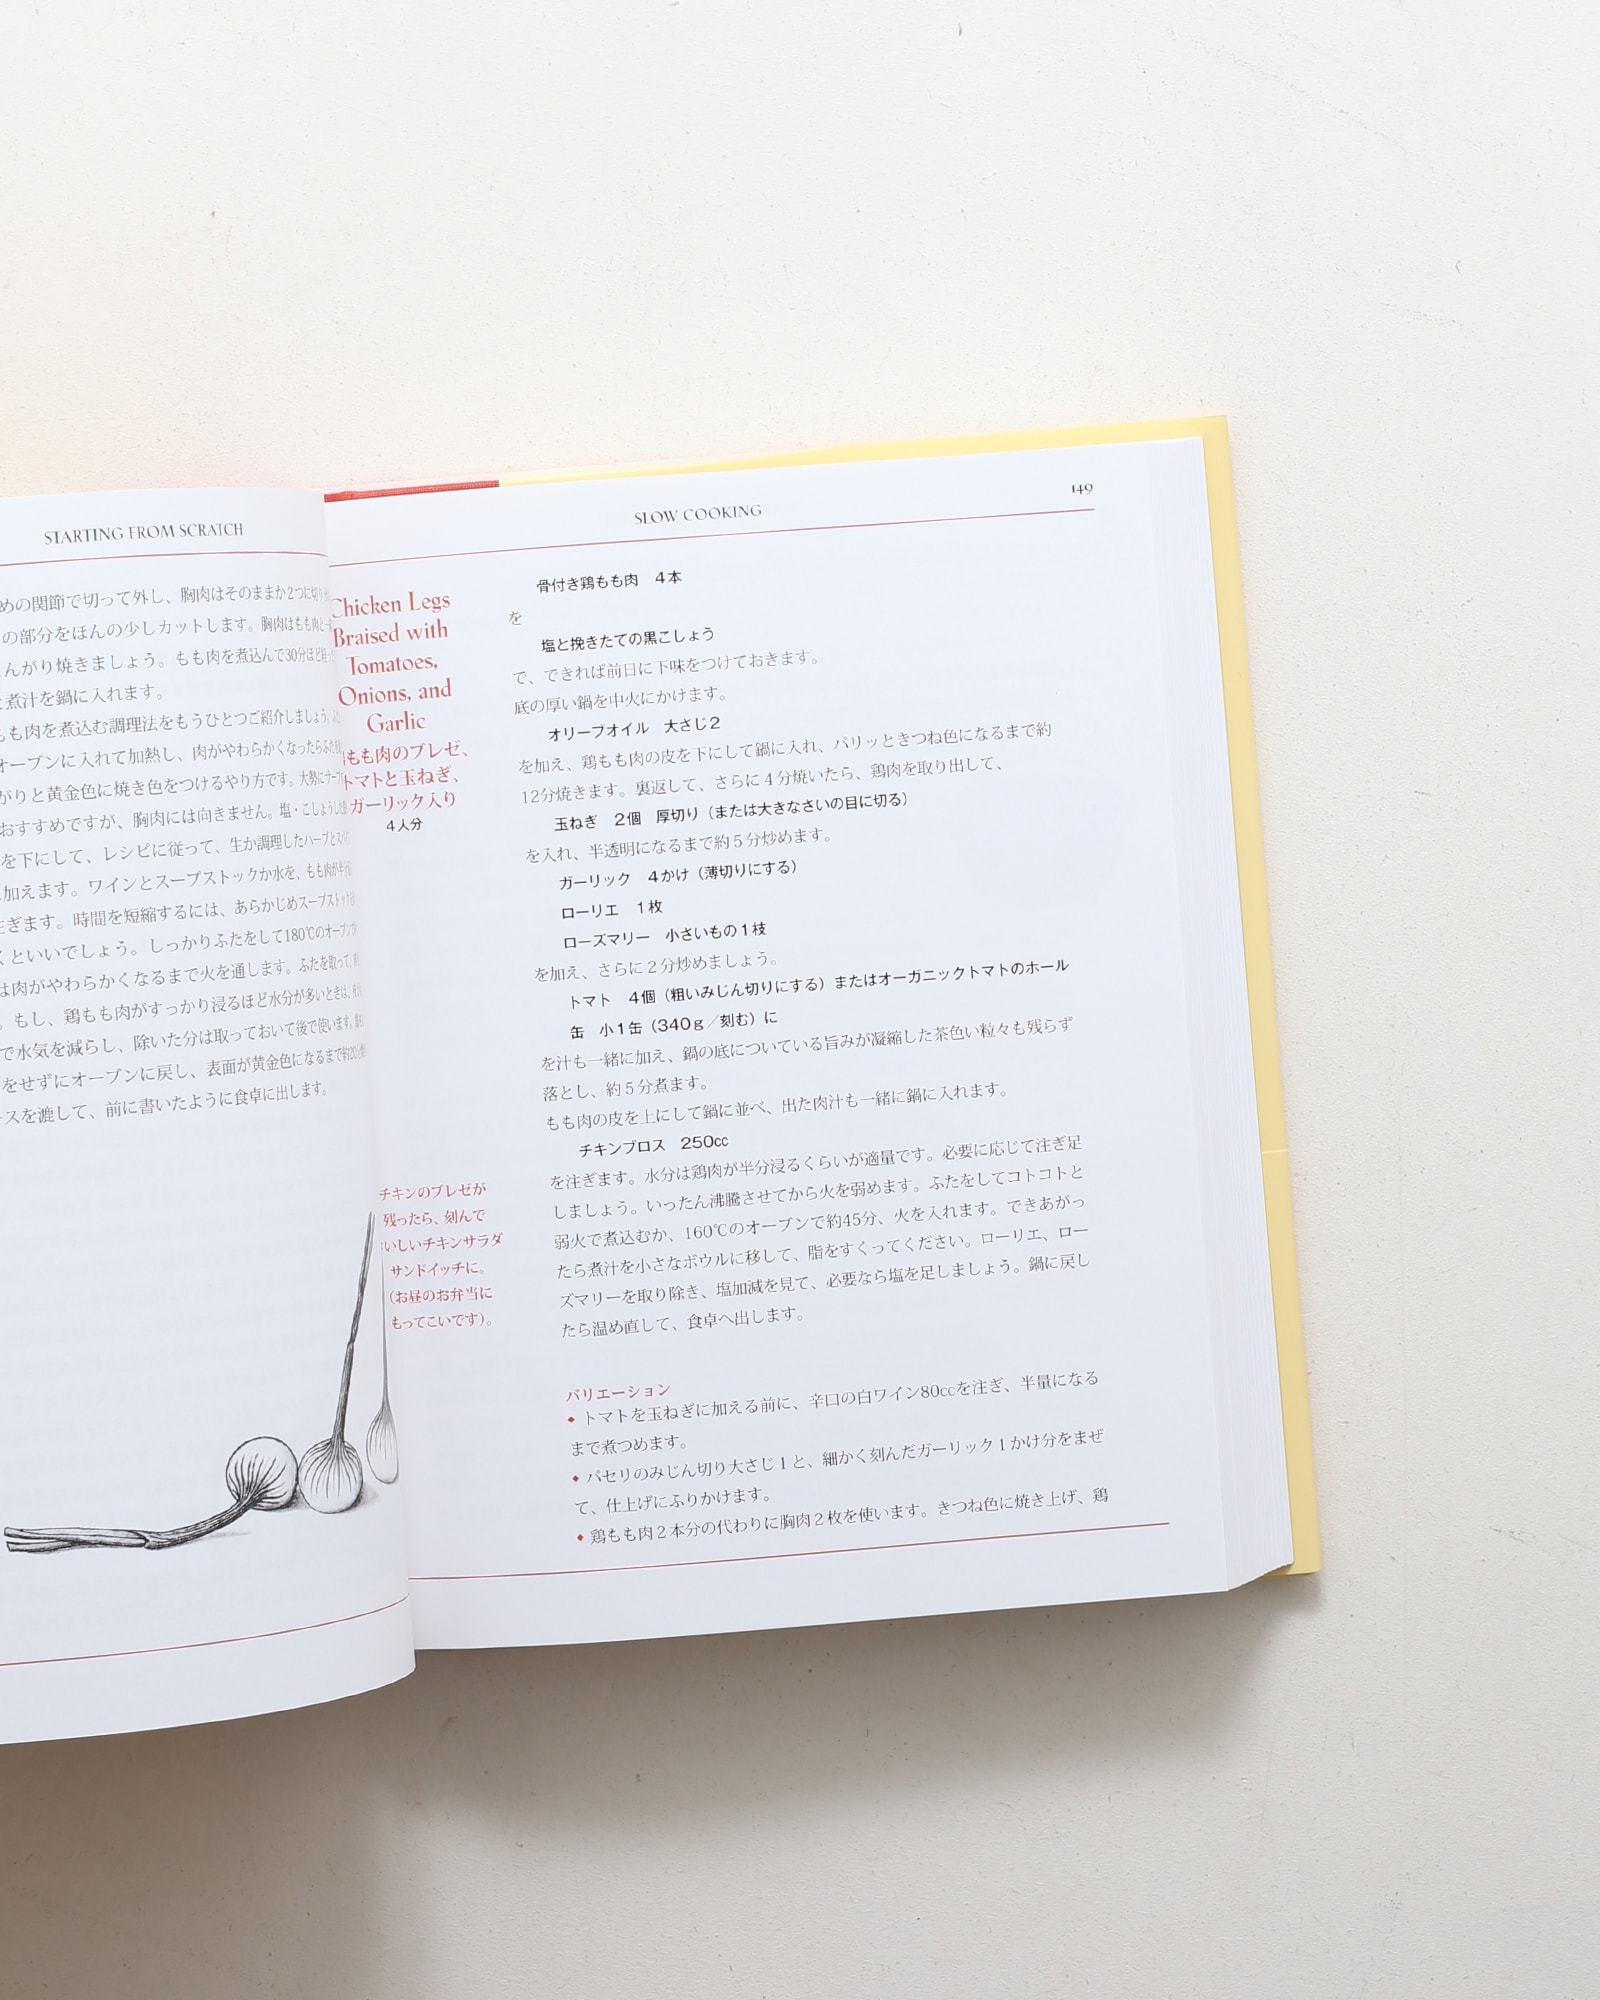 STARTING FROM SCRATCH
めの関節で切って外し、胸肉はそのままか2つに切り
の部分をほんの少しカットします。胸肉はもも肉と一
んがり焼きましょう。もも肉を煮込んで30分ほど経っ
と煮汁を鍋に入れます。
も肉を煮込む調理法をもうひとつご紹介しましょう。
オーブンに入れて加熱し、肉がやわらかくなったらふた
がりと黄金色に焼き色をつけるやり方です。大勢にサーブ
おすすめですが、胸肉には向きません。塩・こしょうした
を下にして、レシピに従って、生か調理したハーブとスパイ
加えます。ワインとスープストックか水を、もも肉が半
注ぎます。時間を短縮するには、あらかじめスープストック
くといいでしょう。しっかりふたをして180℃のオーブンで
は肉がやわらかくなるまで火を通します。ふたを取って、
。もし、鶏もも肉がすっかり浸るほど水分が多いときは、
で水気を減らし、除いた分は取っておいて後で使います。
をせずにオーブンに戻し、表面が黄金色になるまで約20分
ースを漉して、前に書いたように食卓に出します。
SLOW COOKING
149
Chicken Legs
Braised with
Tomatoes,
Onions, and
Garlic
もも肉のブレゼ、
トマトと玉ねぎ、
ガーリック入り
4人分
骨付き鶏もも肉 4本
を
塩と挽きたての黒こしょう
で、できれば前日に下味をつけておきます。
底の厚い鍋を中火にかけます。
オリーブオイル 大さじ2
を加え、鶏もも肉の皮を下にして鍋に入れ、パリッときつね色になるまで約
12分焼きます。裏返して、さらに4分焼いたら、鶏肉を取り出して、
玉ねぎ 2個 厚切り（または大きなさいの目に切る）
を入れ、半透明になるまで約5分炒めます。
ガーリック 4かけ（薄切りにする）
ローリエ 1枚
ローズマリー 小さいもの1枝
を加え、さらに2分炒めましょう。
トマト 4個（粗いみじん切りにする）またはオーガニックトマトのホール
缶 小1缶（340g／刻む）に
を汁も一緒に加え、鍋の底についている旨みが凝縮した茶色い粒々も残らず
落とし、約5分煮ます。
もも肉の皮を上にして鍋に並べ、出た肉汁も一緒に鍋に入れます。
チキンブロス 250cc
を注ぎます。水分は鶏肉が半分浸るくらいが適量です。必要に応じて注ぎ足
しましょう。いったん沸騰させてから火を弱めます。ふたをしてコトコトと
弱火で煮込むか、160℃のオーブンで約45分、火を入れます。できあがっ
たら煮汁を小さなボウルに移して、脂をすくってください。ローリエ、ロー
ズマリーを取り除き、塩加減を見て、必要なら塩を足しましょう。鍋に戻し
たら温め直して、食卓へ出します。
チキンのブレゼが
残ったら、刻んで
いしいチキンサラダ
サンドイッチに。
（お昼のお弁当に
もってこいです）。
バリエーション
◆ トマトを玉ねぎに加える前に、辛口の白ワイン80ccを注ぎ、半量になる
まで煮つめます。
◆ パセリのみじん切り大さじ1と、細かく刻んだガーリック1かけ分をまぜ
て、仕上げにふりかけます。
◆ 鶏もも肉2本分の代わりに胸肉2枚を使います。きつね色に焼き上げ、鶏